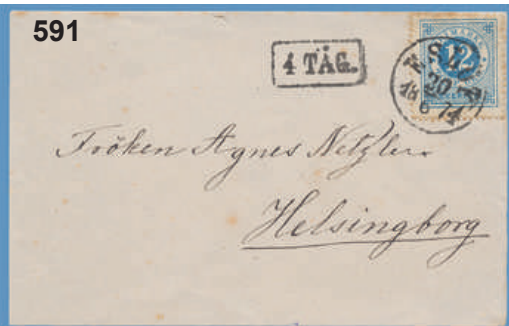 591
4 TÅG.
12
20
6
18 74
Fröken Agnes Netzler.
Helsingborg